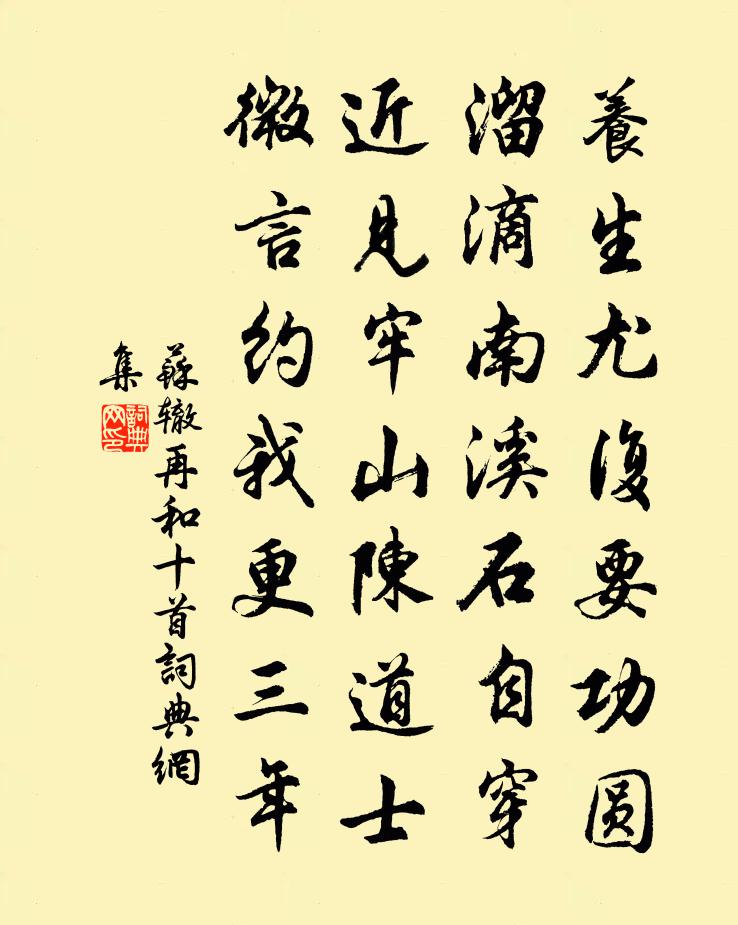 養生尤復要功圓
溜滴南溪石自穿
近見牢山陳道士
微言約我更三年
蘇轍再和十首詞典網
集
詞典
网印